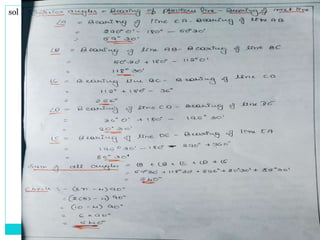 sol
Interior angles = Bearing of previous line - Bearing of next line
LA = Bearing of line EA - Bearing of line AB
= 290°0' - 180° - 50°30'
= 59°30'
LB = Bearing of line AB - Bearing of line BC
= 50°30' + 180° - 112°0'
= 118°30'
LC = Bearing line BC - Bearing of line CD
= 112° + 180° - 36°
= 256°
LD = Bearing of line CD - Bearing of line DE
= 36°0' + 180° - 195°30'
= 20°30'
LE = Bearing of line DE - Bearing of line EA
= 195°30' - 180° - 290° + 360°
= 85°30'
Sum of all angles = LA + LB + LC + LD + LE
= 59°30' + 118°30' + 256° + 20°30' + 85°30'
= 540°
Check :- (2n - 4) 90°
= (2(5) - 4) 90°
= (10 - 4) 90°
= 6 × 90°
= 540°